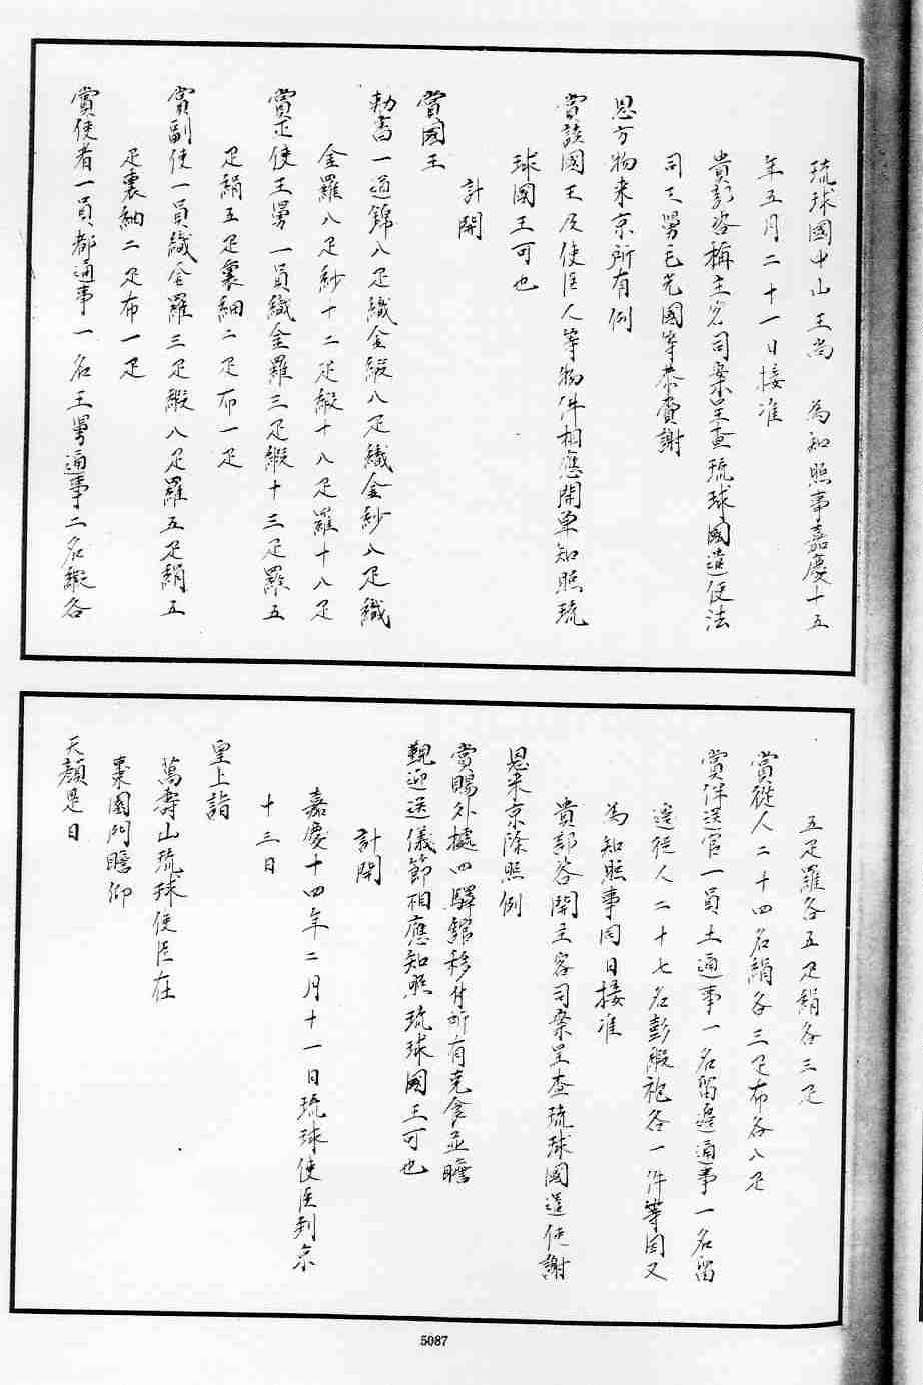 琉球國中山王尚　為知照事嘉慶十五
年五月二十一日接准
貴部咨稱主客司案呈查琉球國遣使法
司王舅毛光國等恭賫謝
恩方物來京所有例
賞該國王及使臣人等物件相應開单知照琉
球國王可也
計開
賞國王
勅書一道錦八疋織金緞八疋織金紗八疋織
金羅八疋紗十二疋緞十八疋羅十八疋
賞正使王舅一員織金羅三疋緞十三疋羅五
疋絹五疋裏紬二疋布一疋
賞副使一員織金羅三疋緞八疋羅五疋絹五
疋裏紬二疋布一疋
賞使者一員都通事一名王舅通事二名緞各
五疋羅各五疋絹各三疋
賞從人二十四名絹各三疋布各八疋
賞伴送官一員土通事一名留邊通事一名留
邊從人二十七名彭緞袍各一件等因又
為知照事同日接准
貴部咨開主客司案呈查琉球國遣使謝
恩來京除照例
賞賜外據四驛館移付所有克食並瞻
覲迎送儀節相應知照琉球國王可也
計開
嘉慶十四年二月十一日琉球使臣到京
十三日
皇上詣
萬壽山琉球使臣在
棗園門瞻仰
天顏是日
5087